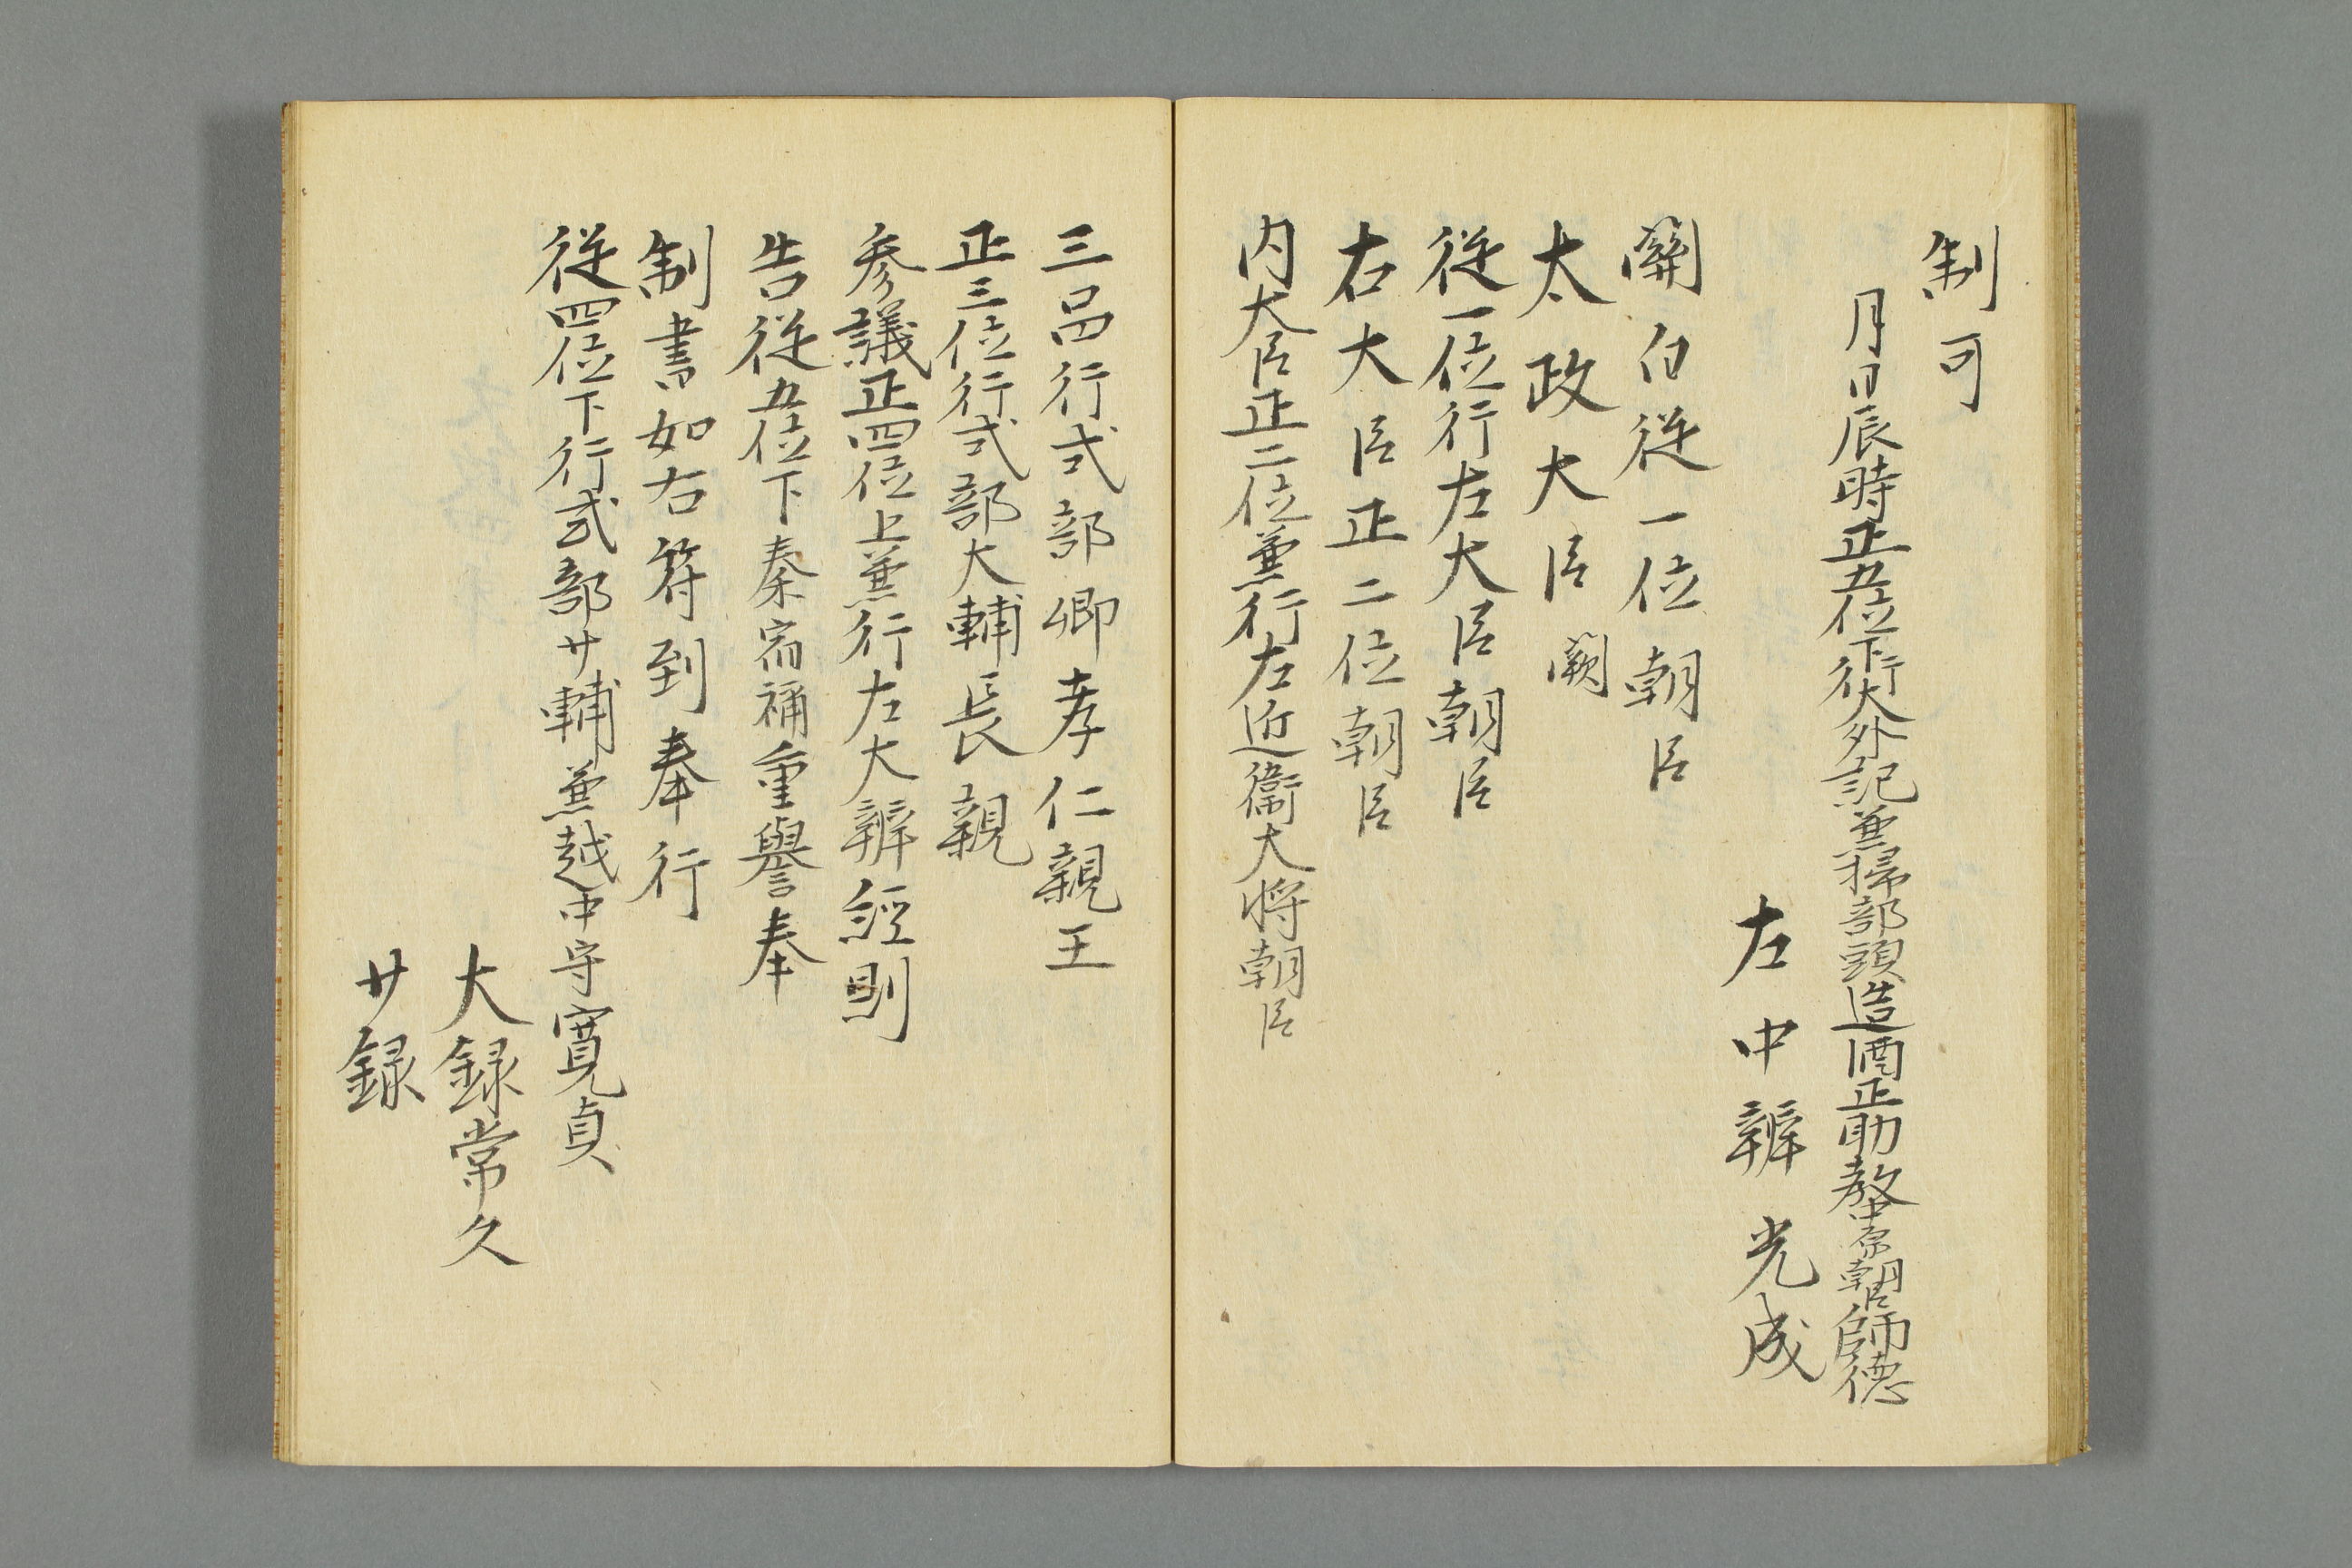 制可
月日辰時正五位下行大外記兼掃部頭造酒正助教中原朝臣師德
左中辨光成
關白從一位朝臣
太政大臣闕
從一位行左大臣朝臣
右大臣正二位朝臣
内大臣正二位兼行左近衞大将朝臣
三品行式部卿孝仁親王
正三位行式部大輔長親
参議正四位上兼行左大辨經則
告從五位下秦宿祢重譽奉
制書如右符到奉行
從四位下行式部少輔兼越中守寛貞
大録常久
少録